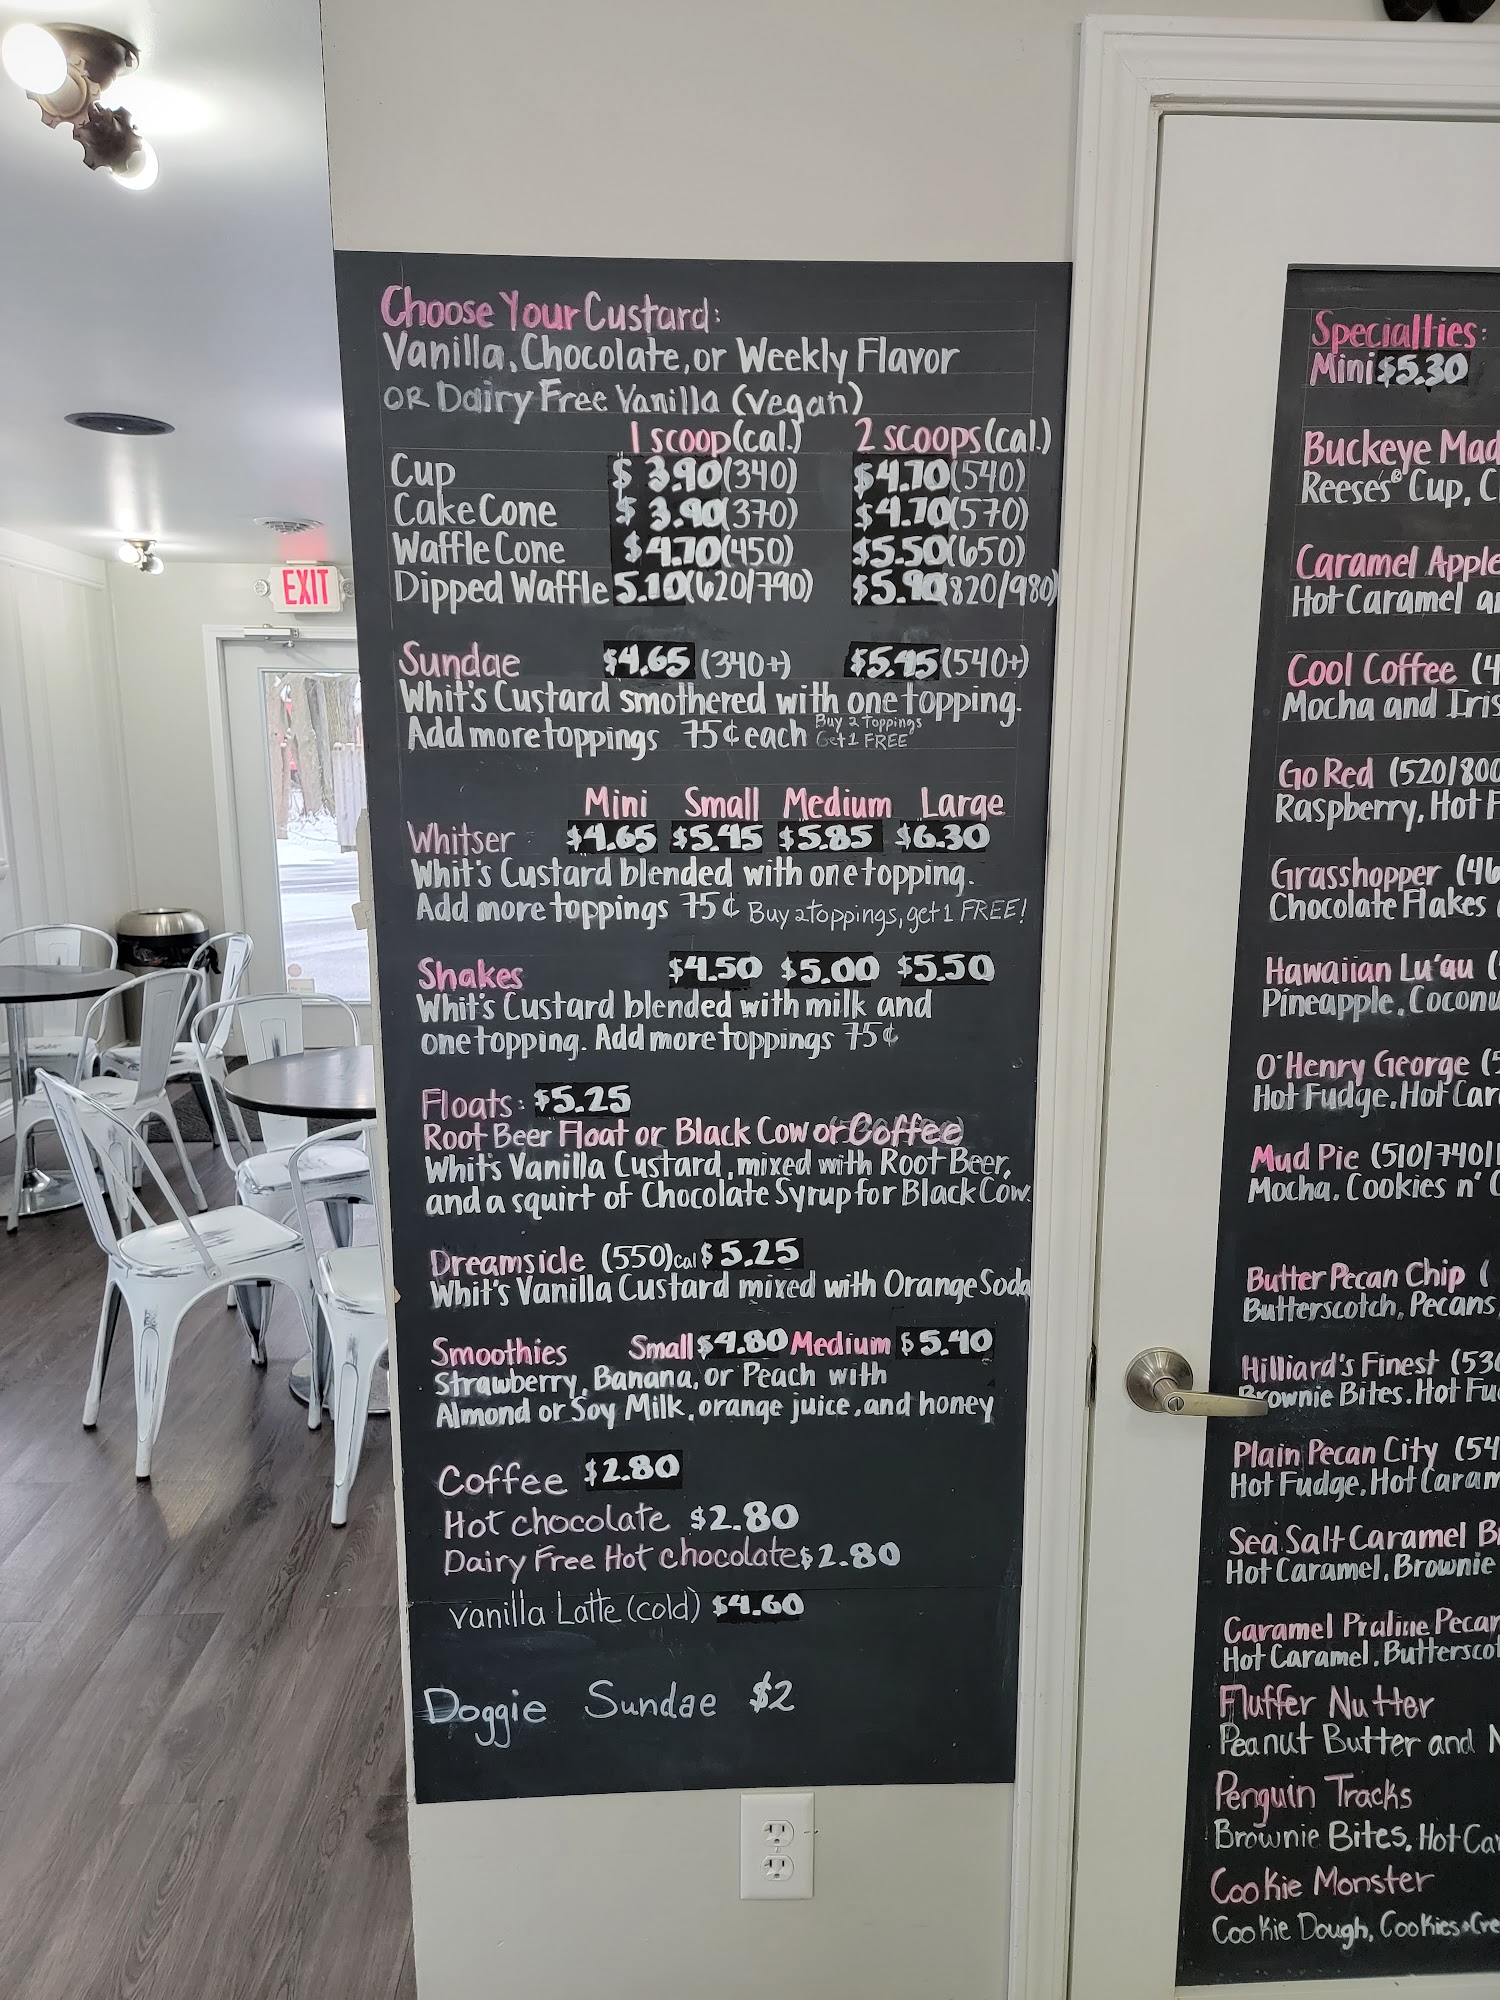 EXIT
Choose Your Custard:
Vanilla, Chocolate, or Weekly Flavor
OR Dairy Free Vanilla (vegan)
1 scoop (cal.) 2 scoops (cal.)
Cup $3.90 (340) $4.70 (540)
Cake Cone $3.90 (370) $4.70 (570)
Waffle Cone $4.70 (450) $5.50 (650)
Dipped Waffle 5.10 (620/790) $5.90 (820/980)
Sundae $4.65 (340+) $5.45 (540+)
Whit's Custard smothered with one topping.
Add more toppings 75¢ each Buy 2 Toppings
Get 1 FREE
Mini Small Medium Large
Whitser $4.65 $5.45 $5.85 $6.30
Whit's Custard blended with one topping.
Add more toppings 75¢ Buy 2 toppings, get 1 FREE!
Shakes $4.50 $5.00 $5.50
Whit's Custard blended with milk and
one topping. Add more toppings 75¢
Floats: $5.25
Root Beer Float or Black Cow or Coffee
Whit's Vanilla Custard, mixed with Root Beer,
and a squirt of Chocolate Syrup for Black Cow.
Dreamsicle (550)cal $5.25
Whit's Vanilla Custard mixed with Orange Soda
Smoothies Small $4.80 Medium $5.40
Strawberry, Banana, or Peach with
Almond or Soy Milk, orange juice, and honey
Coffee $2.80
Hot chocolate $2.80
Dairy Free Hot chocolate $2.80
vanilla Latte (cold) $4.60
Doggie Sundae $2
Specialties:
Mini $5.30
Buckeye Mad
Reeses® Cup, C
Caramel Apple
Hot Caramel an
Cool Coffee (4
Mocha and Iris
Go Red (520/800
Raspberry, Hot F
Grasshopper (46
Chocolate Flakes
Hawaiian Lu'au (
Pineapple, Coconu
O'Henry George (5
Hot Fudge, Hot Car
Mud Pie (510/740/1
Mocha, Cookies n' C
Butter Pecan Chip (
Butterscotch, Pecans,
Hilliard's Finest (530
Brownie Bites, Hot Fu
Plain Pecan City (54
Hot Fudge, Hot Caram
Sea Salt Caramel B
Hot Caramel, Brownie
Caramel Praline Pecan
Hot Caramel, Butterscot
Fluffer Nutter
Peanut Butter and
Penguin Tracks
Brownie Bites, Hot Ca
Cookie Monster
Cookie Dough, Cookies+Cre